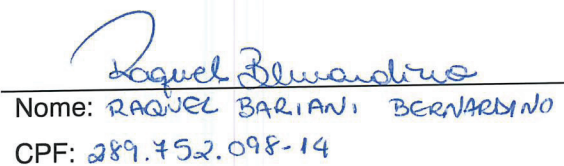 Raquel Bernardino
Nome: RAQUEL BARIANI BERNARDINO
CPF: 289.752.098-14